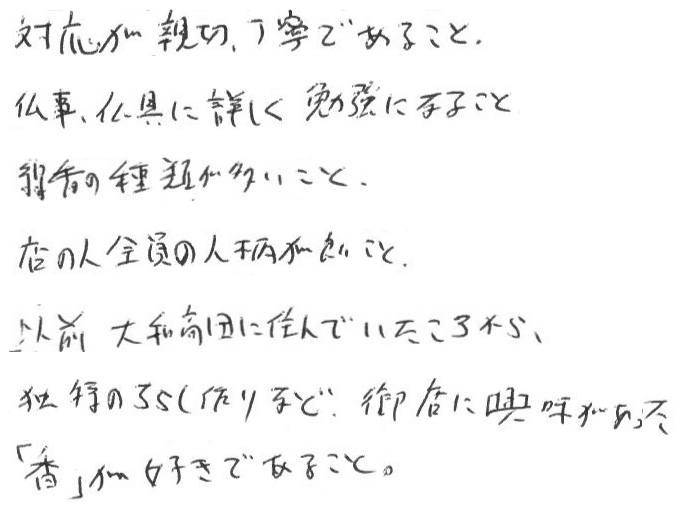 対応が親切、丁寧であること.
仏事、仏具に詳しく勉強になること
線香の種類が多いこと.
店の人全員の人柄が良いこと.
以前 大和高田に住んでいたころから、
独特のちらし作りなど、御店に興味があった
「香」が好きであること。